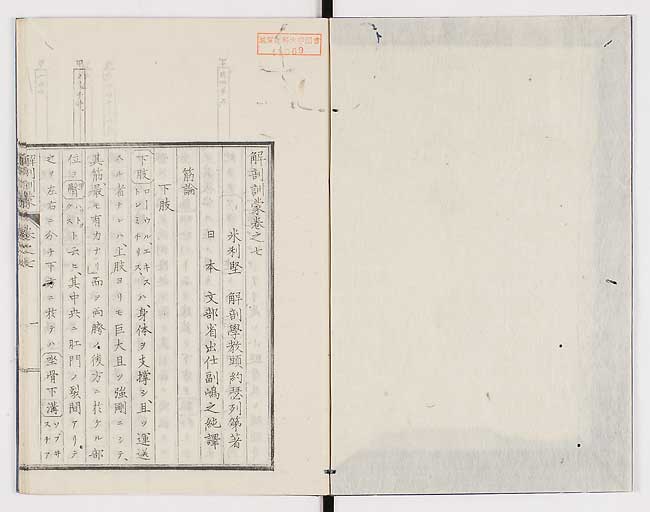 解剖訓蒙卷之七
米利堅 解剖學教頭約瑟列第著
日本 文部省出仕副嶋之純譯
筋論
下肢
下肢ローウル、エキストレミチース ハ、身体ヲ支撐シ且ツ運送
スル者ナレハ、上肢ヨリモ巨大且ツ強剛ニシテ、
其筋最モ有力ナリ」而ソ両胯ノ後方ニ於ケル部
位ヲ臀 クスト云ヒ、其中央ニ肛門ノ裂間アリテ
之ヲ左右ニ分チ下方ニ於テハ坐骨下溝
解剖訓蒙 卷之七 一